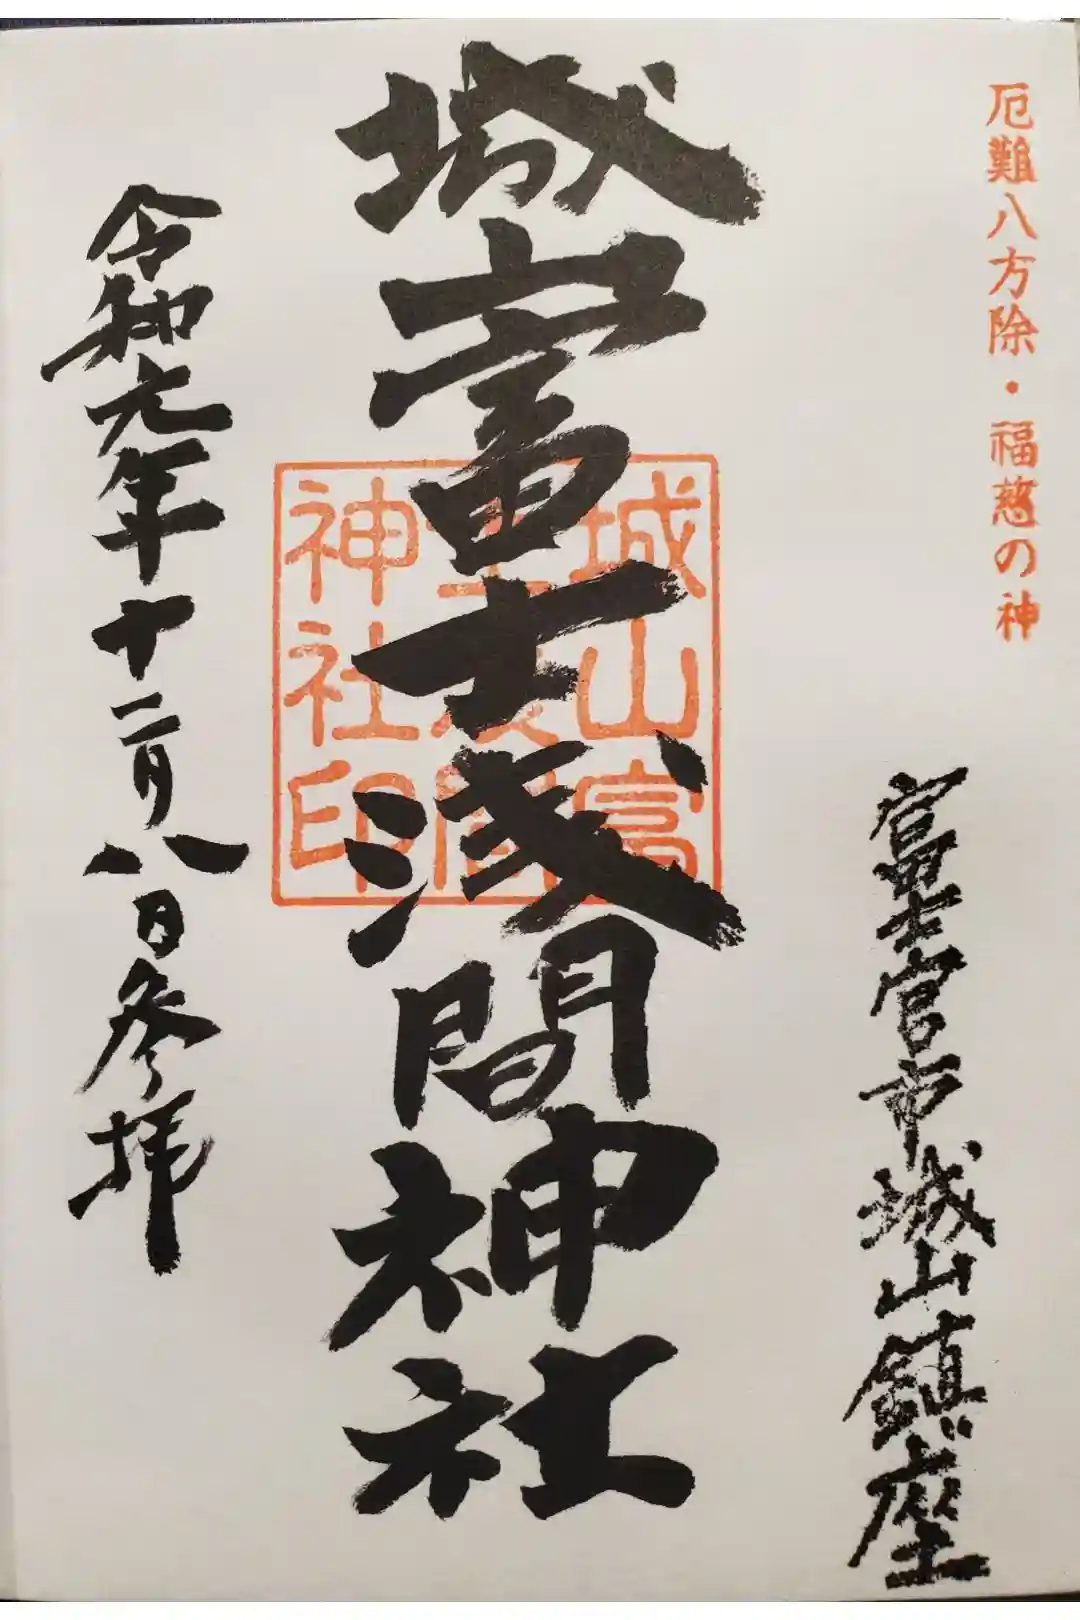 厄難八方除・福慈の神
富士宮市城山鎮座
城山富士浅間神社
城山富
士浅間
神社印
令和元年十二月八日参拝